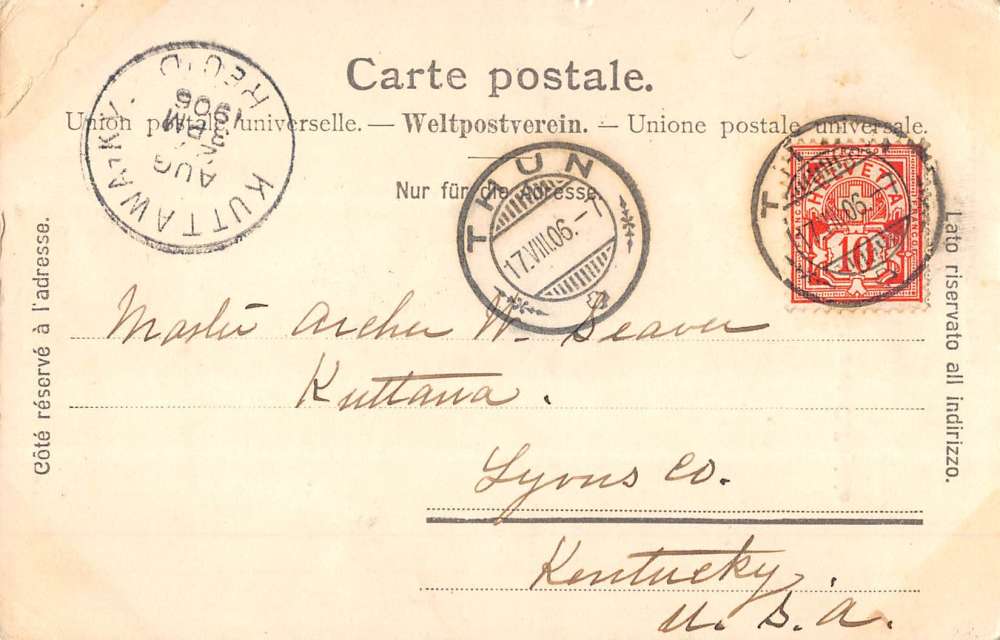 Carte postale.
Union postale universelle. — Weltpostverein. — Unione postale universale.
Nur für die Adresse.
KUTTAWA-KY.
AUG
PM
1906
REC'D
THUN
17.VIII.06.–
HELVETIA
FRANCO
10
17.VIII.06.–
Côté réservé à l'adresse.
Lato riservato all indirizzo.
Master Archer W. Seaver
Kuttana.
Lyons Co.
Kentucky.
U.S.A.